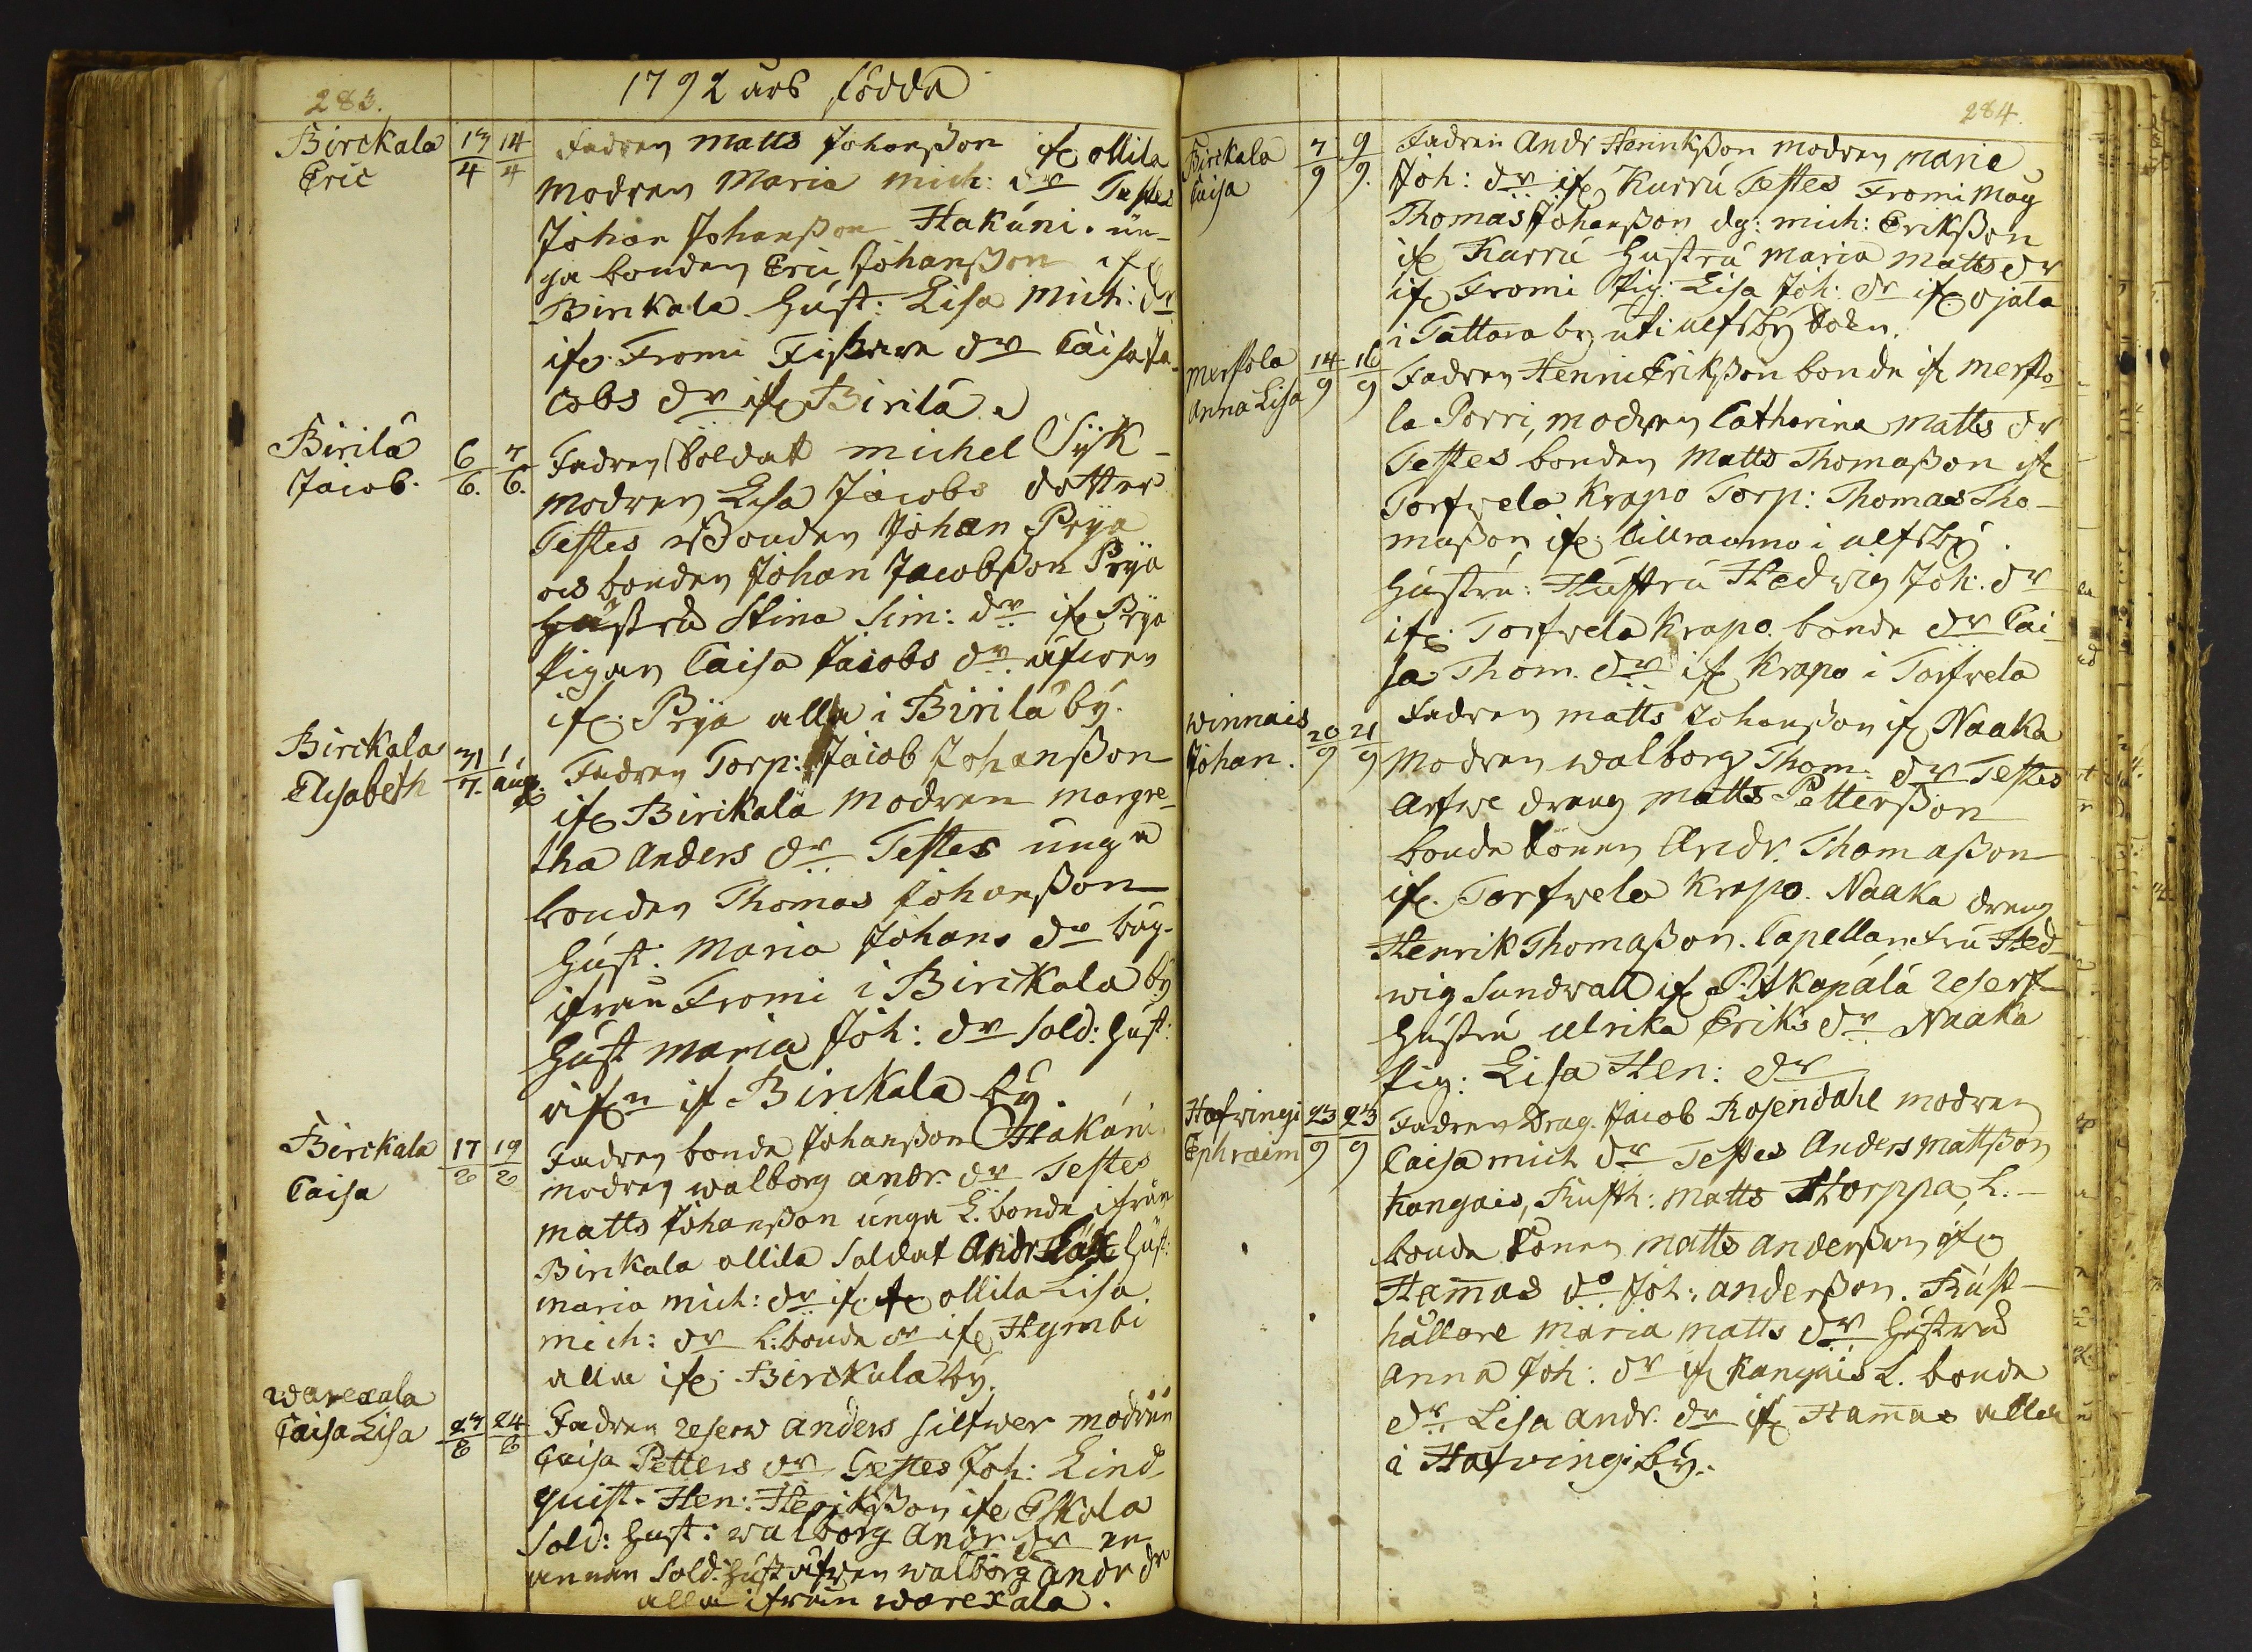 283.
1792 års födda
Birckala 13/4 14/4 Fadren Matts Johanßon if. ollila
Eric
Modren Maria Mich: dr Testes
Johan Johanßon Hakúni. ún-
ga bonden Eric Johanßon if.
Birckala Húst: Lisa Mich: dr
if. Fromi Caisa Ja-
cobs dr if. Birilä
Birilä 6/6. 7/6. Fadren Soldat michel Sÿk
Jacob.
modren Lisa Jacobs dotter
Testes Bonden Johan Prÿa
bonden Johan Jacobßon Prÿa
Hústrú Stina Sim: dr if. Prÿa
Pigan Caisa Jacobs dr äfwen
if. Prÿa alla i Birilä bÿ.
Birckala 31/7. 1/aug. Fadren Torp: Jacob Johanßon
Elisabeth
if. Birckala Modren Margre-
tha Anders dr Testes unga
bonden Thomas Johanßon
Húst: Maria Johans dr
ifrån Fromi i Birckala bÿ
Húst maria Joh: dr Sold: Húst:
if Birckala bÿ.
Birckala 17/8 19/8 Fadren bonde Johanßon Hakúni
Caisa
modren walborg andr. dr Testes
matts Johanßon únga L. bonde ifrån
Birckala ollila Soldat Andr Húst:
maria mich: dr if. ollila Lisa
mich: dr L: bonde dr if. Hÿmbi
alla if. Birckala bÿ.
warexala
Caisa Lisa 23/8 24/8 Fadren reserw anders silfwer modren
Caisa Petters dr Testes Joh: Lind
quist. Hen: Henrikßon if. Eskola
Sold: Húst: walborg Andr dr en
annan Sold: Húst äfwen walborg andr dr
alla ifrån warexala.
284.
Birckala 7/9 9/9. Fadren Andr Henrikßon modren marie
Caisa
Joh: dr if. Kurrú Testes Fromi Måg
Thomas Johanßon dg: mich: Erikßon
if. Kurrú Hústrú maria matts dr
if. Fromi Pig: Lisa Joh: dr if. ojala
i Tattara by uti ulfsbÿ Sokn.
Merstola 14/9 16/9 Fadren Henric Erikßon bonde if. Mersto-
Anna Lisa
la Porri, modren Catharina Matts dr
Testes bonden Matts Thomaßon if.
Torfwela Krapo Torp: Thomas Tho-
maßon if. Lillraumo i ulfsbÿ.
Hústrú: Hústrú Hedwig Joh: dr
if. Torfwela Krapo. bonde dr Cai-
sa Thom. dr if. Krapo i Torfwela
Winnais 20/9 21/9 Fadren matts Johanßon if. Naaka
Johan.
Modren walborg Thom: dr Testes
Arfwe dreng Matts Petterßon
bonde Sonen Andr. Thomaßon
if. Torfwela Krapo. Naaka dreng
Henrik Thomaßon. Capellans frú Hed-
wig Sundwall if. Pitkäpälä reserf
Hústrú Ulrika Eriks dr Naaka
Pig: Lisa Hen: dr
Hafwingi 23/9 23/9 Fadren Drag. Jacob Rosendahl modren
Ephraim
Caisa mich dr Testes Anders Mattßon
Kangais, Rusth: Matts Storppa, L. -
bonde Sonen matts Anderßon if.
Ham̅as do Joh: anderßon. Rúst-
hållare Maria Matts dr Hústrú
Anna Joh: dr if. Kangais L. bonde
dr Lisa Andr. dr if. Ham̅as alla
i Hafwingi bÿ.